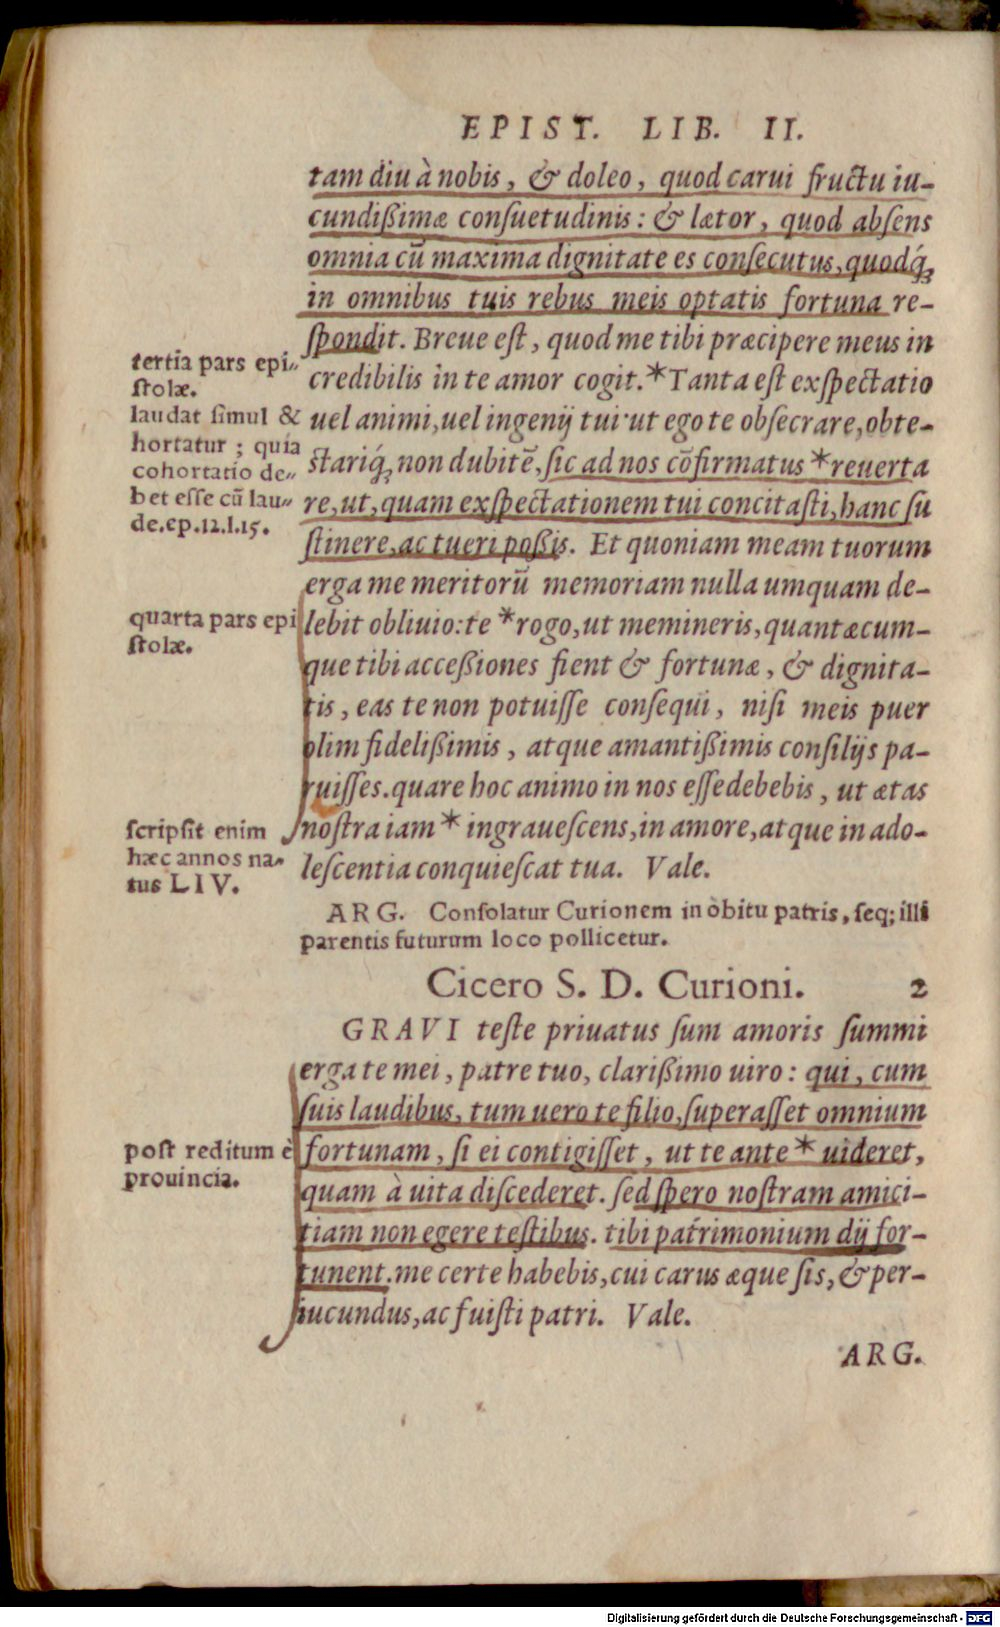 EPIST. LIB. II.
tam diu à nobis, & doleo, quod carui fructu iu-
cundißimæ conſuetudinis: & lætor, quod abſens
omnia cū maxima dignitate es conſecutus, quodq́;
in omnibus tuis rebus meis optatis fortuna re-
ſpondit. Breue eſt, quod me tibi præcipere meus in
credibilis in te amor cogit.*Tanta eſt exſpectatio
uel animi, uel ingenij tui· ut ego te obſecrare, obte-
ſtariq́; non dubitē, ſic ad nos cōfirmatus *reuerta
re, ut, quam exſpectationem tui concitaſti, hanc ſu
ſtinere, ac tueri poßis. Et quoniam meam tuorum
erga me meritorū memoriam nulla umquam de-
lebit obliuio: te *rogo, ut memineris, quantæcum-
que tibi acceßiones fient & fortunæ, & dignita-
tis, eas te non potuiſſe conſequi, niſi meis puer
olim fidelißimis, atque amantißimis conſilijs pa-
ruiſſes. quare hoc animo in nos eſſe debebis, ut ætas
noſtra iam * ingraueſcens, in amore, atque in ado-
leſcentia conquieſcat tua. Vale.
tertia pars epi-
ſtolæ.
laudat ſimul &
hortatur ; quia
cohortatio de-
bet eſſe cū lau-
de.ep.12.l.15.
quarta pars epi
ſtolæ.
ſcripſit enim
hæc annos na-
tus LIV.
ARG. Conſolatur Curionem in obitu patris, ſeq; illi
parentis futurum loco pollicetur.
Cicero S. D. Curioni. 2
GRAVI teſte priuatus ſum amoris ſummi
erga te mei, patre tuo, clarißimo uiro: qui, cum
ſuis laudibus, tum uero te filio, ſuperaſſet omnium
fortunam, ſi ei contigiſſet, ut te ante * uideret,
quam à uita diſcederet. ſed ſpero noſtram amici-
tiam non egere teſtibus. tibi patrimonium dij for-
tunent. me certe habebis, cui carus æque ſis, & per-
iucundus, ac fuiſti patri. Vale.
poſt reditum è
prouincia.
ARG.
Digitalisierung gefördert durch die Deutsche Forschungsgemeinschaft - DFG